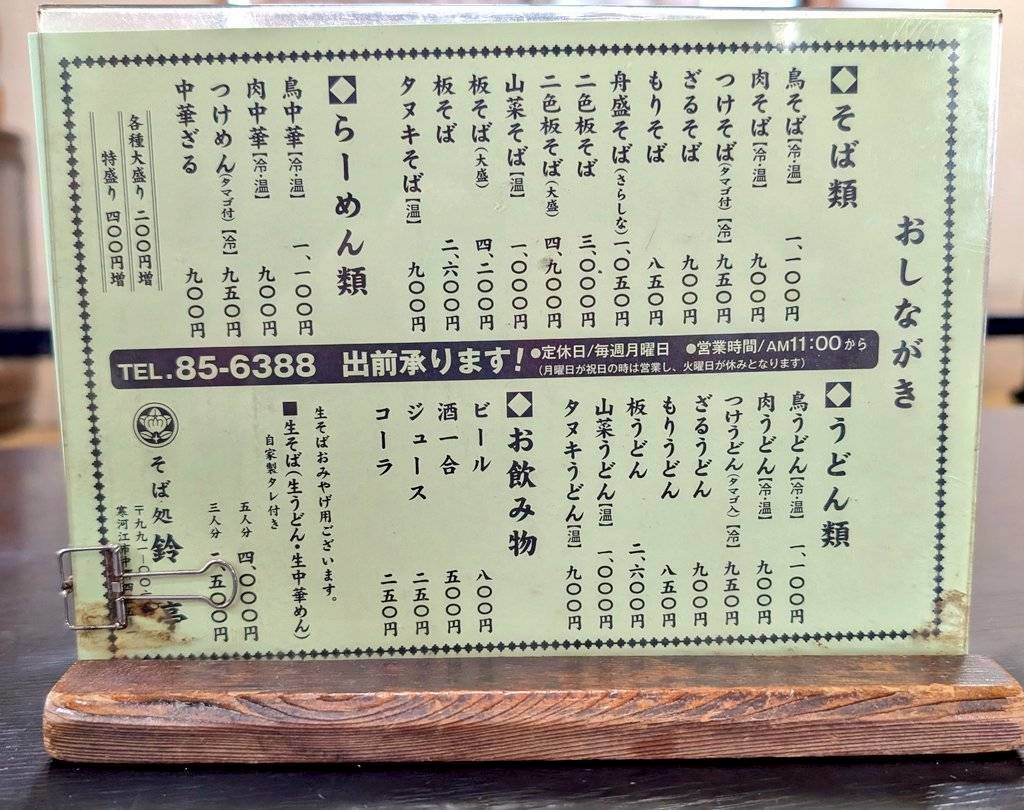 おしながき
◇そば類
鳥そば【冷・温】 一、一〇〇円
肉そば【冷・温】 九〇〇円
つけそば(タマゴ付)【冷】 九五〇円
ざるそば 九〇〇円
もりそば 八五〇円
舟盛そば(さらしな) 一、〇五〇円
二色板そば 三、〇〇〇円
二色板そば(大盛) 四、九〇〇円
山菜そば【温】 一、〇〇〇円
板そば(大盛) 四、二〇〇円
板そば 二、六〇〇円
タヌキそば【温】 九〇〇円
◇らーめん類
鳥中華【冷・温】 一、一〇〇円
肉中華【冷・温】 九〇〇円
つけめん(タマゴ付)【冷】 九五〇円
中華ざる 九〇〇円
各種大盛り 二〇〇円増
特盛り 四〇〇円増
TEL.85-6388 出前承ります! ●定休日/毎週月曜日 ●営業時間/AM11:00から
(月曜日が祝日の時は営業し、火曜日が休みとなります)
◇うどん類
鳥うどん【冷・温】 一、一〇〇円
肉うどん【冷・温】 九〇〇円
つけうどん(タマゴ入)【冷】 九五〇円
ざるうどん 九〇〇円
もりうどん 八五〇円
板うどん 二、六〇〇円
山菜うどん【温】 一、〇〇〇円
タヌキうどん【温】 九〇〇円
◇お飲み物
ビール 八〇〇円
酒一合 五〇〇円
ジュース 二五〇円
コーラ 二五〇円
生そばおみやげ用ございます。
■生そば(生うどん・生中華めん)
自家製タレ付き
五人分 四、〇〇〇円
三人分 五〇〇円
そば処 鈴 亭
〒九九一-〇〇
寒河江市中